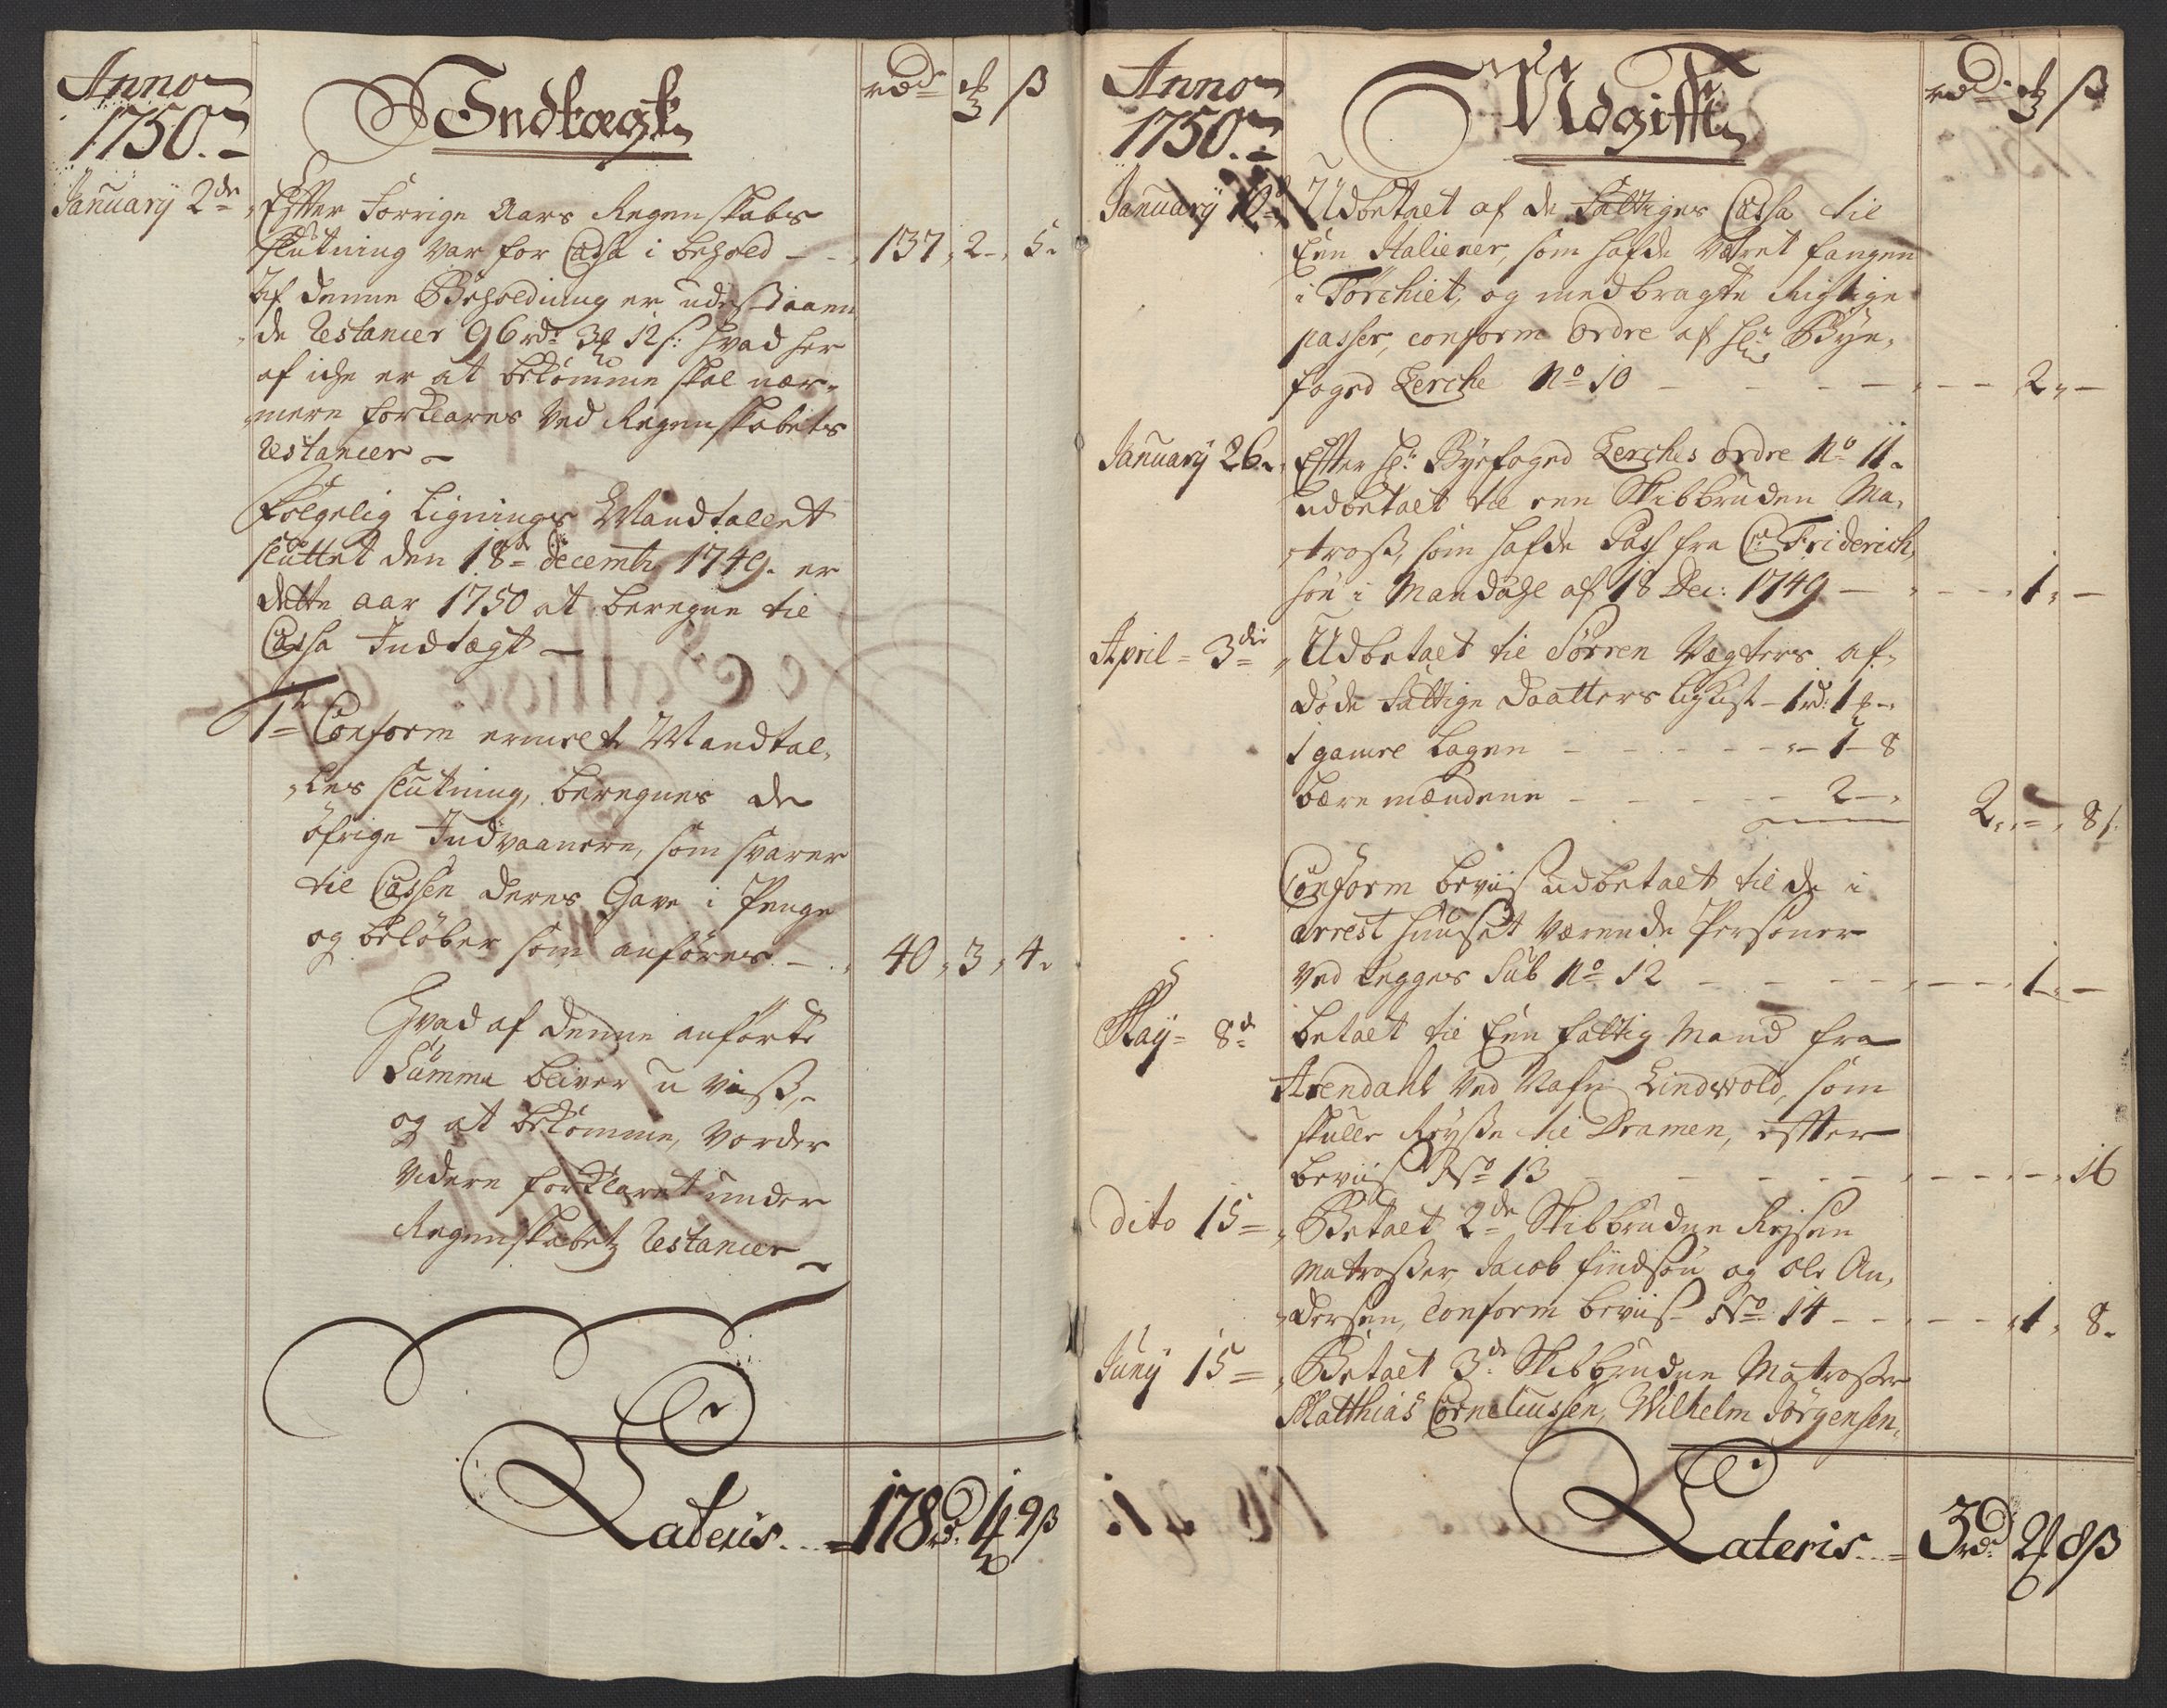 Anno
1750.
Indtægt
rdr ₰ ß
January 2de
Efter Forrige Aars Regenskabs
slutning var for Cassa i behold - - 137. 2. 5.
Af denne Beholdning er udestaaen
de Restancer 96 rdr 3 ₰ 12 s: hvad her
af iche er at bekomme skal nær-
mere forklares ved Regenskabets
Restancer
Følgelig Lignings Mandtallet
sluttet den 18de decembr 1749. er
dette aar 1750 at beregne til
Cassa Indtægt
1te Conform ermelte Mandtal-
les slutning, beregnes de
øfrige Indvaanere, som svarer
til Cassen deres Gave i Penge
og beløber som anføres - 40. 3. 4.
Hvad af denne anførte
Summa bliver u viss,
og at bekomme, vorder
videre forklaret under
Regenskabetz Restancer
Lateris... 178 rdr 1 ₰ 9 ß
Anno
1750.
Udgifft
rdr ₰ ß
January 10de
Udbetalt af de Fattiges Cassa til
Een Italiener, som hafde været fangen
i Törchiet, og medbragte rigtige
passer, conform Ordre af Hr Bye-
foged Lerche No 10 - - - 2. -
January 26.
Efter Hr Byefoged Lerches Ordre No 11.
udbetalt til een Skibbruden Ma-
tross, som hafde Pass fra Cr Friderich
søn i Mandahl af 18 Dec: 1749 - - 1. -
April 3die
Udbetalt til Sörren Vægters af-
døde fattige Daatters Ligkist - 1 rdr 1 ₰ -
1 gamel Lagen - - - 1 - 8
bære mændene - - - 2 -
2. - . 8 s.
Conform beviis udbetalt til de i
arrest huuset værende Personer
ved Legges Sub No 12 - - - 1. -
May 8de
betalt til Een fattig Mand fra
Arendahl ved Nafn Lindwold, som
skulle Reysse til Dramen, efter
beviis No 13 - - - 16
dito 15
Betalt 2de Skibbrudne Rejsen
Matrosser Jacob findsøn og Ole An-
dersen, Conform beviis No 14 - - 1. 8.
Juny 15
Betalt 3de Skibbrudne Matrosser
Matthias Corneliussen, Wilhelm Jörgensen,
Lateris... 3 rdr 2 ₰ 8 ß